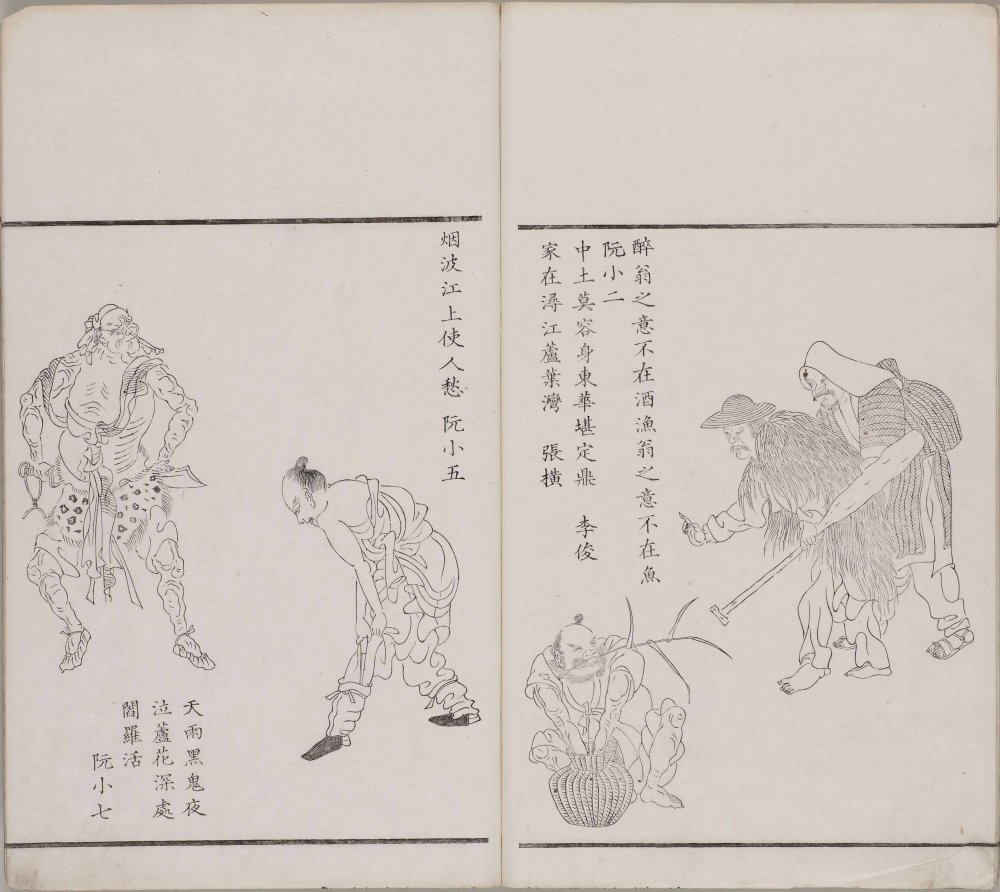 醉翁之意不在酒漁翁之意不在魚
阮小二
中土莫容身東華堪定鼎 李俊
家在潯江蘆葉灣 張橫
烟波江上使人愁 阮小五
天雨黑鬼夜
泣蘆花深處
閻羅活
阮小七